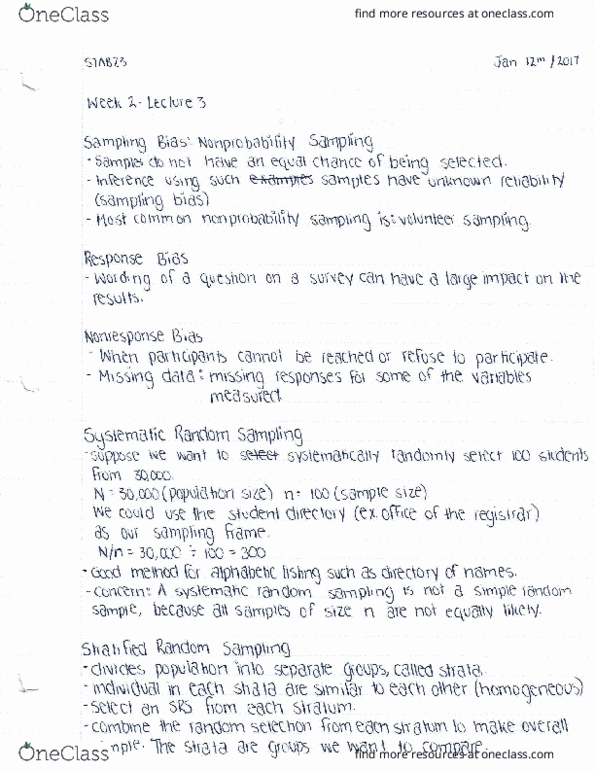 OneClass
find more resources at oneclass.com
STAB23
Jan 12th/2017
Week 2 - Lecture 3
Sampling Bias: Nonprobability Sampling
- Samples do not have an equal chance of being selected.
- Inference using such examples samples have unknown reliability
(sampling bias)
- Most common nonprobability sampling is: volunteer sampling.
Response Bias
- Wording of a question on a survey can have a large impact on the
results.
Nonresponse Bias
- When participants cannot be reached or refuse to participate.
- Missing data: missing responses for some of the variables
measured
Systematic Random Sampling
- suppose we want to select systematically randomly select 100 students
from 30,000.
N = 30,000 (population size) n = 100 (sample size)
We could use the student directory (ex. office of the registrar)
as our sampling frame.
N/n = 30,000 ÷ 100 = 300
- Good method for alphabetic listing such as directory of names.
- concern: A systematic random sampling is not a simple random
sample, because all samples of size n are not equally likely.
Stratified Random Sampling
- divides population into separate groups, called strata.
- individual in each strata are similar to each other (homogeneous)
- select an SRS from each stratum.
- combine the random selection from each stratum to make overall
The strata are groups we want to compare.
OneClass
find more resources at oneclass.com